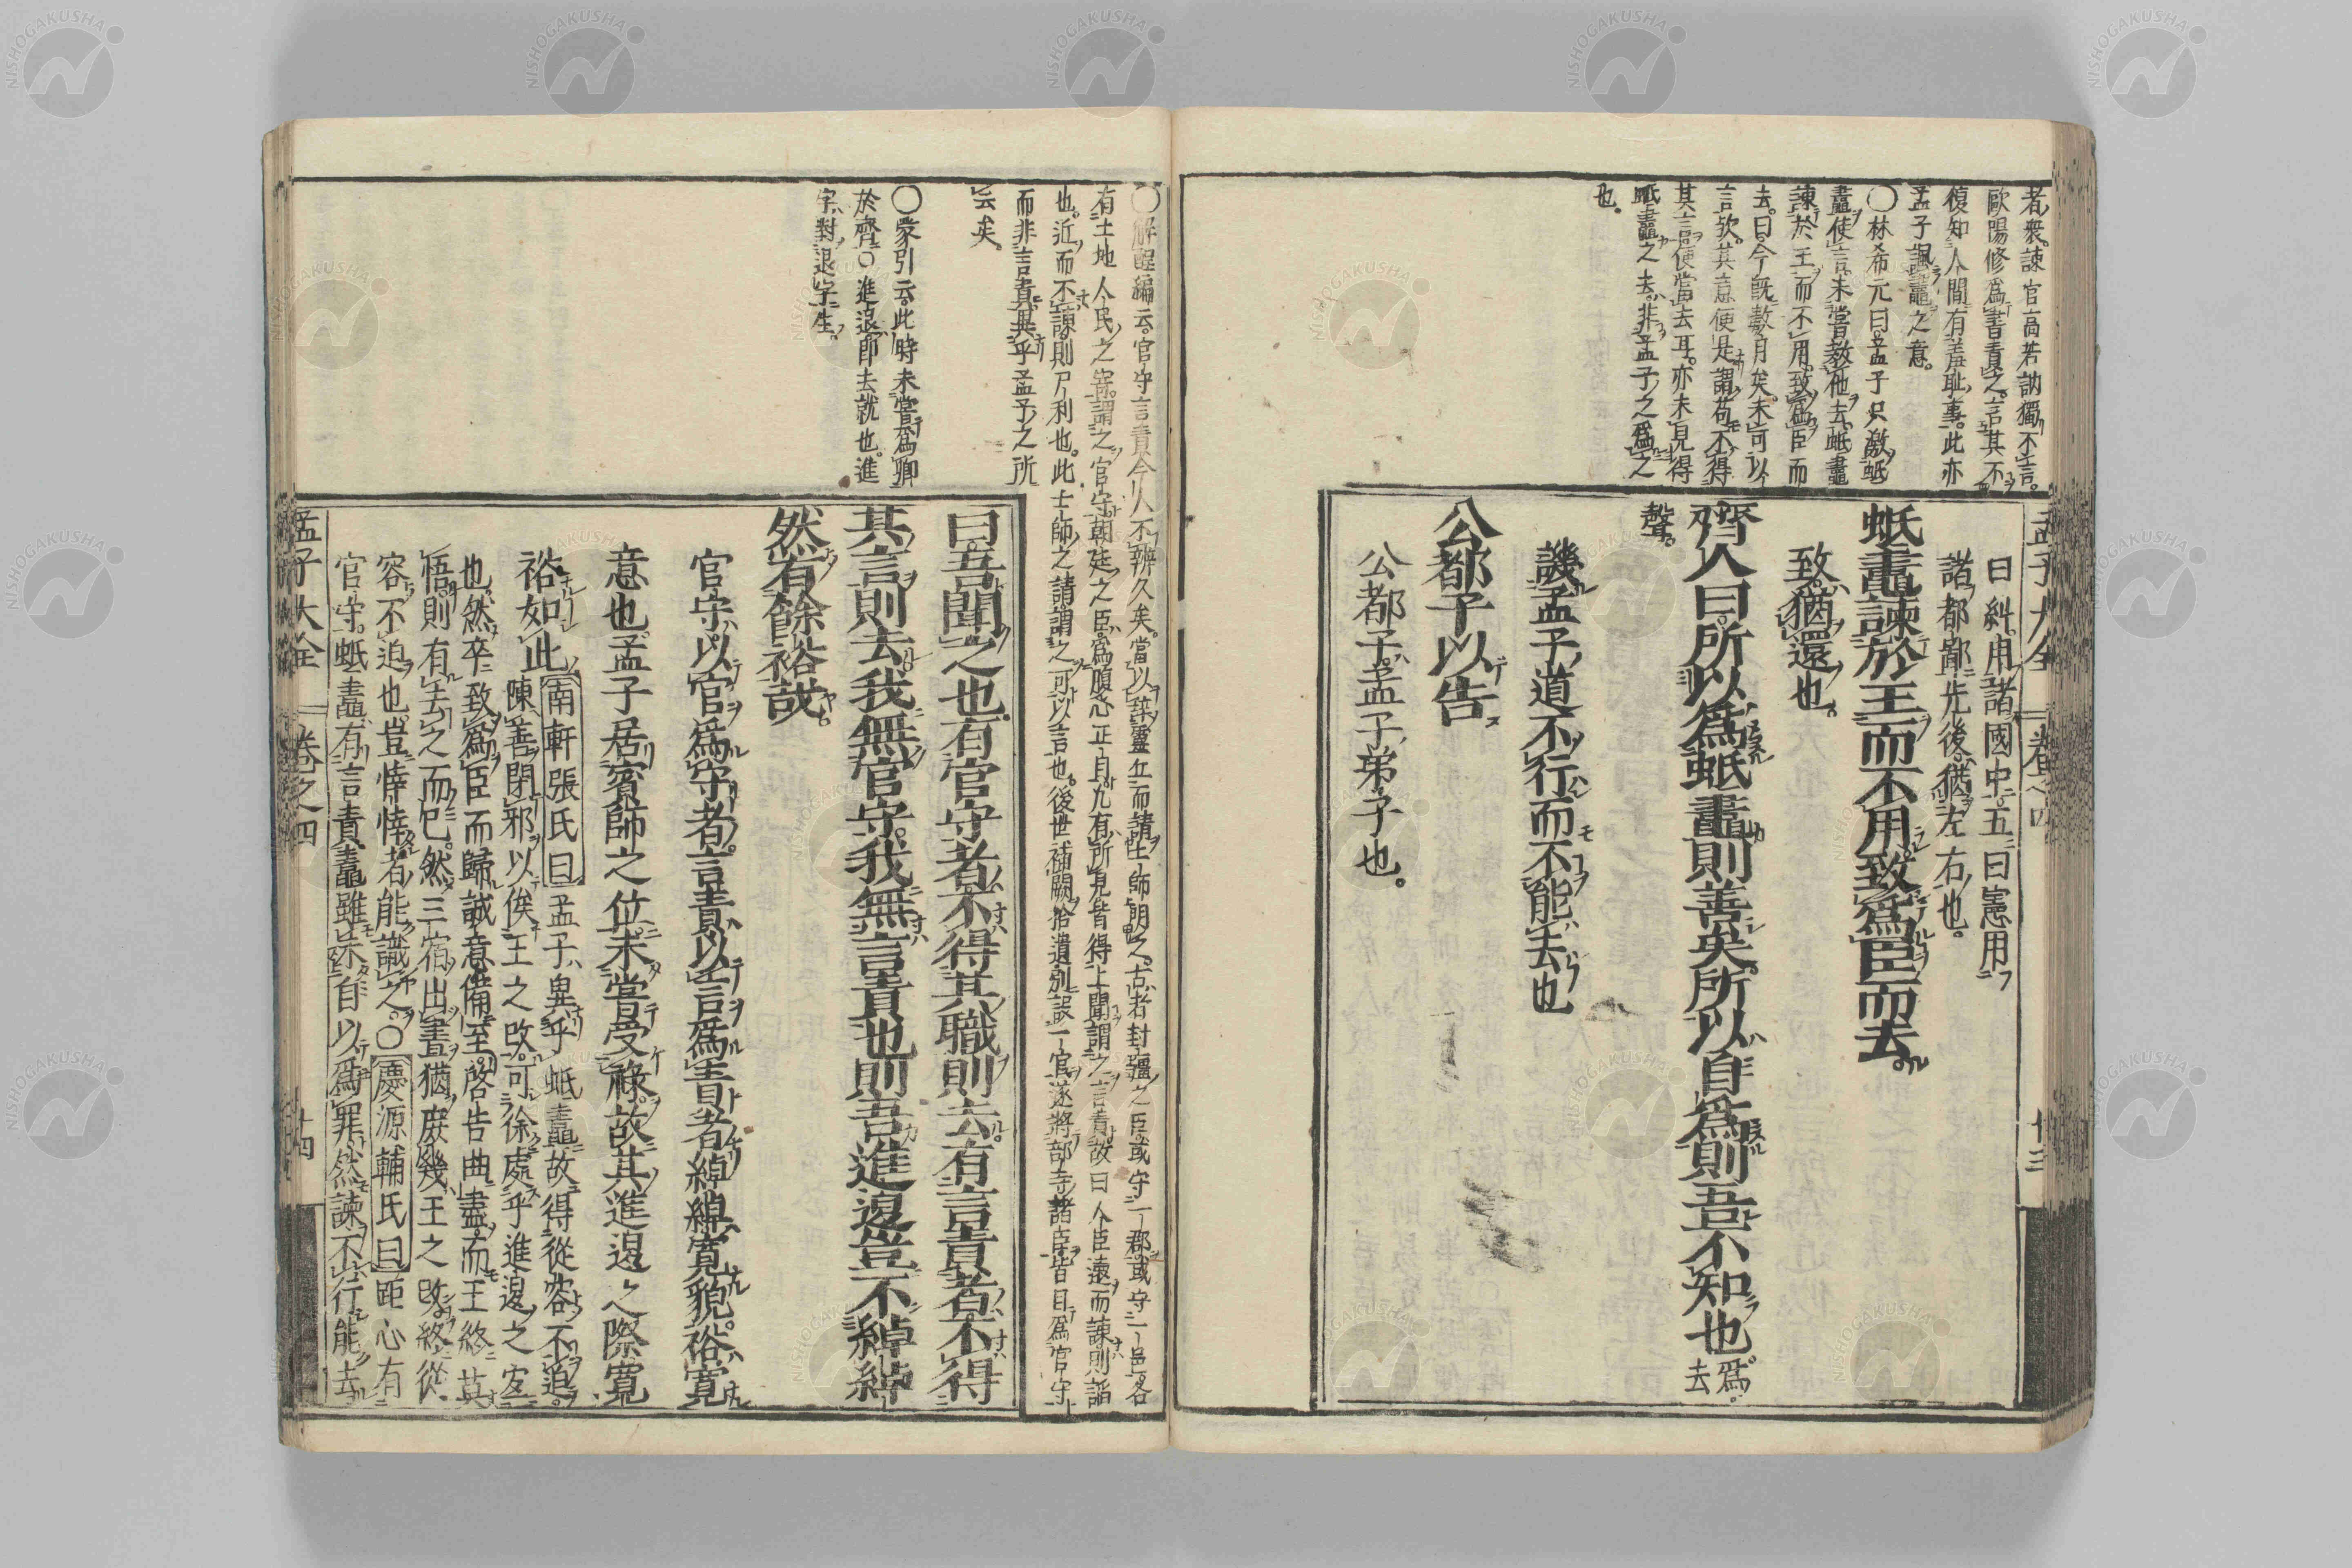 者衆諫官高若訥獨不言。
歐陽修為書責之。言其不
復知人間有羞恥事。此亦
孟子諷鼃之意。
〇林希元曰孟子只激蚳
鼃使言。未嘗教他去。蚳鼃
諫於王而不用。致為臣而
去。曰今既數月矣。未可以
言歟。其意便是謂苟不得
其言。便當去耳。亦未見得
蚳鼃之去。非孟子之為之
也。
孟子大全
卷之四
十三
曰糾。用諸國中五曰憲用
諸都鄙先後猶左右也。
蚳鼃諫於王而不用致為臣而去。
致猶還也。
齊人曰所以為蚳鼃則善矣所以自為則吾不知也 為。去
聲。
譏孟子道不行而不能去也
公都子以告
公都子孟子弟子也。
〇解醒編云。官守言責今人不辨久矣。當以辭靈丘而請士師明之。古者封疆之臣或守一郡或守一邑各
有土地人民之寄。謂之官守。朝廷之臣。為腹心正自九有所見皆得上聞謂之言責。故曰人臣遠而諫則謟
也。近而不諫則尸利也。此士師之請。謂之可以言也。後世補闕拾遺別設一官遂將部寺諸臣皆目為官守
而非言責異乎孟子之所
云矣。
〇蒙引云。此時未嘗為卿
於齊〇進退即去就也。進
字對退字生。
曰吾聞之也有官守者不得其職則去有言責者不得
其言則去我無官守我無言責也則吾進退豈不綽綽
然有餘裕哉
官守。以官為守者。言責以言為責者綽綽寬貌。裕寬
意也。孟子居賓師之位未嘗受祿。故其進退之際寬
裕如此 南軒張氏曰孟子異乎蚳鼃故得從容不迫。
陳善閉邪以俟王之改。可徐處乎進退之宜
也然卒致為臣而歸誠意備至。啓告曲盡。而王終莫
悟則有去之而已。然三宿出晝猶庶幾王之改。終從
容不迫也。豈悻悻者能識之。〇慶源輔氏曰距心有
官守。蚳鼃有言責鼃雖未自以為罪。然諫不行能去
孟子大全
卷之四
十四